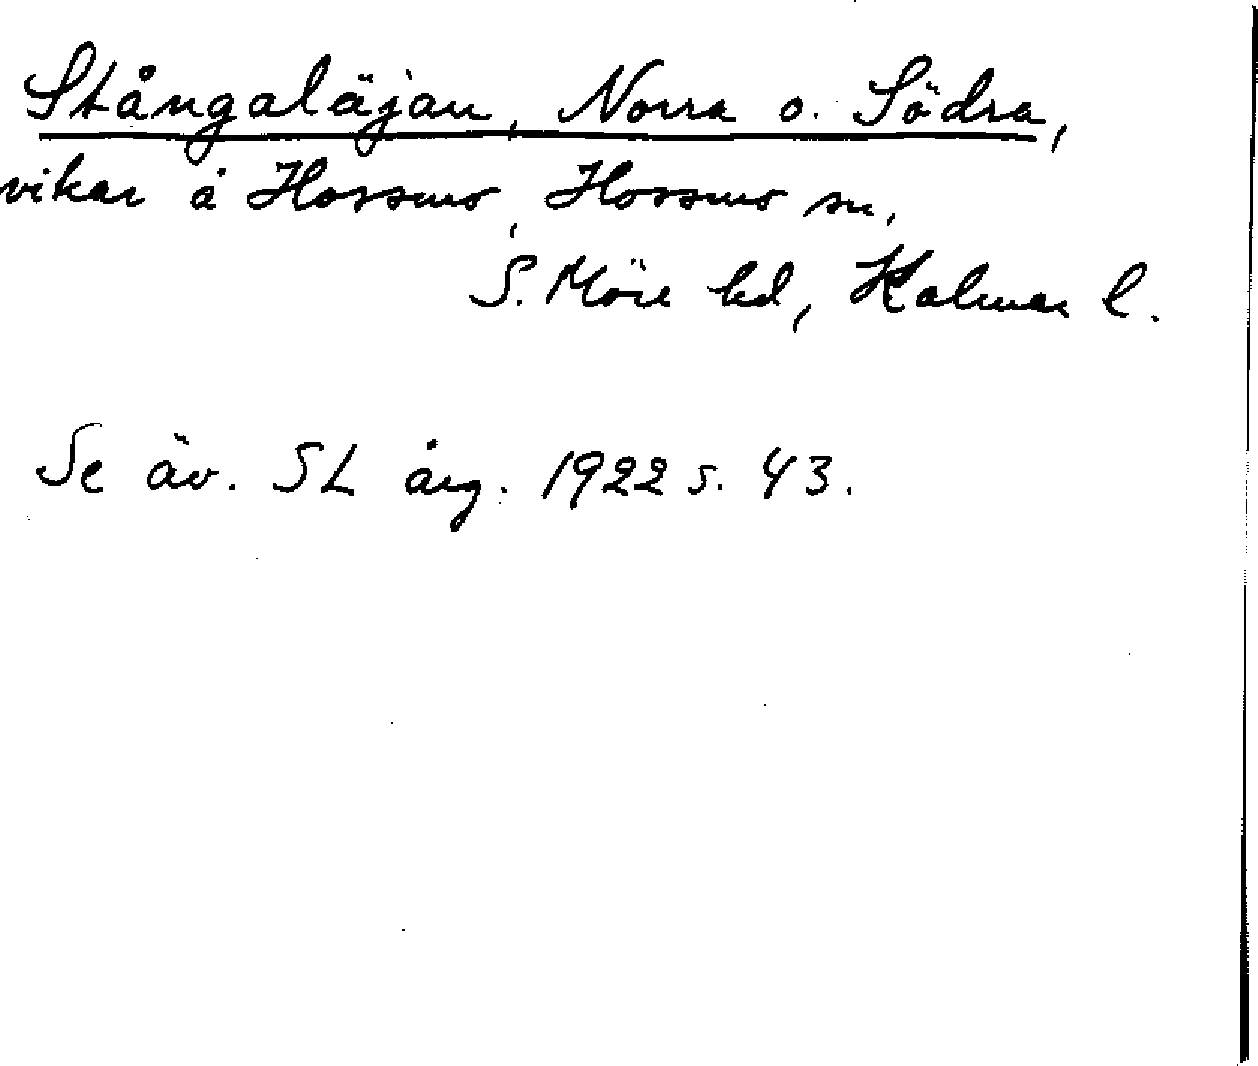 Stångaläjan, Norra o. Södra,
vikar å Hossmo, Hossmo sn,
S. Möre hd, Kalmar l.
Se äv. SL årg. 1922 s. 43.